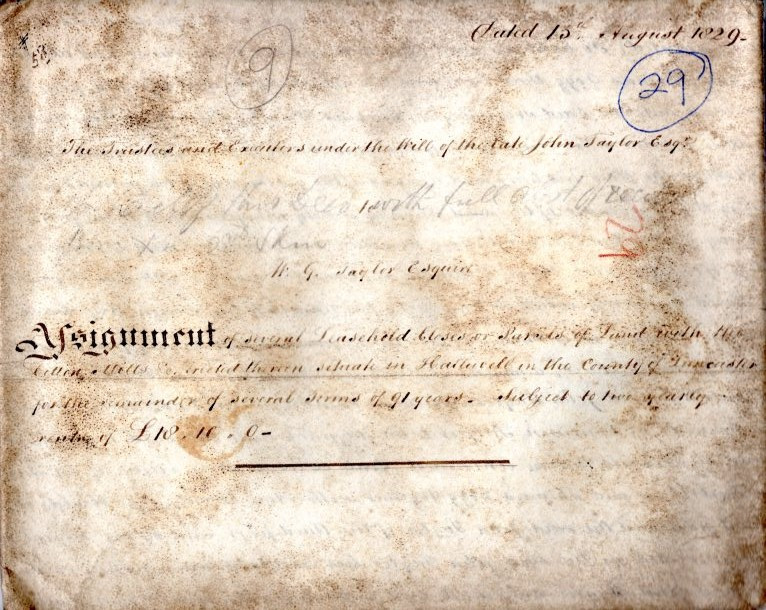 Dated 13th August 1829-
58
9
29
The Trustees and Executors under the Will of the late John Taylor Esqr.
of this Deed with full
29
Skin
W. G. Taylor Esquire
Assignment of several Leasehold Closes or Parcels of Land with the
Cotton Mills &c. erected thereon situate in Halliwell in the County of Lancaster
for the remainder of several terms of 91 years - Subject to two yearly
rents of £18.10.0-